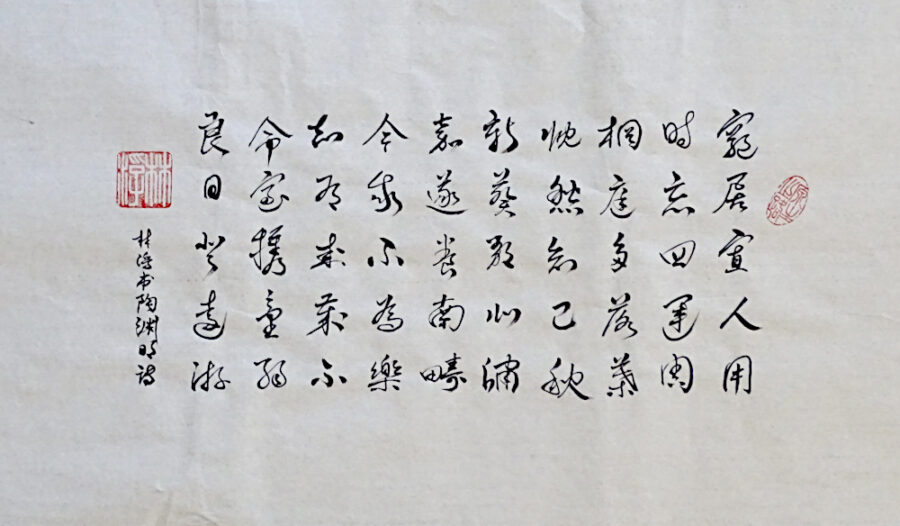 窮居寡人用
時忘四運周
櫚庭多落葉
慨然知已秋
新葵郁北牖
嘉遂養南疇
今我不為樂
知有來歲不
命室携童弱
良日登遠游
林書陶淵明詩
林